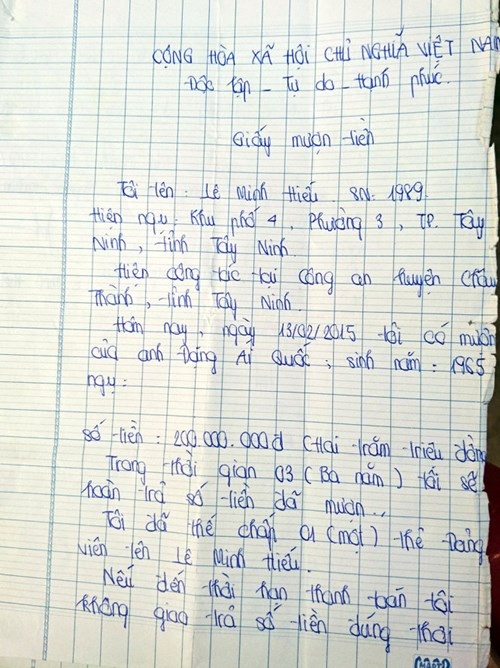 CỘNG HÒA XÃ HỘI CHỦ NGHĨA VIỆT NAM
Độc lập - Tự do - Hạnh phúc.
Giấy mượn tiền
Tôi tên : Lê Minh Hiếu. SN: 1989.
Hiện ngụ: Khu phố 4, Phường 3, TP. Tây
Ninh, tỉnh Tây Ninh.
Hiện công tác tại công an huyện Châu
Thành, tỉnh Tây Ninh.
Hôm nay, ngày 13/02/2015 tôi có mượn
của anh Đặng Ái Quốc, sinh năm: 1965
ngụ:
số tiền : 200.000.000đ (Hai trăm triệu đồng
Trong thời gian 03 (Ba năm) tôi sẽ
hoàn trả số tiền đã mượn.
Tôi đã thế chấp 01 (một) thẻ Đảng
viên tên Lê Minh Hiếu.
Nếu đến thời hạn thanh toán tôi
không giao trả số tiền đúng thời